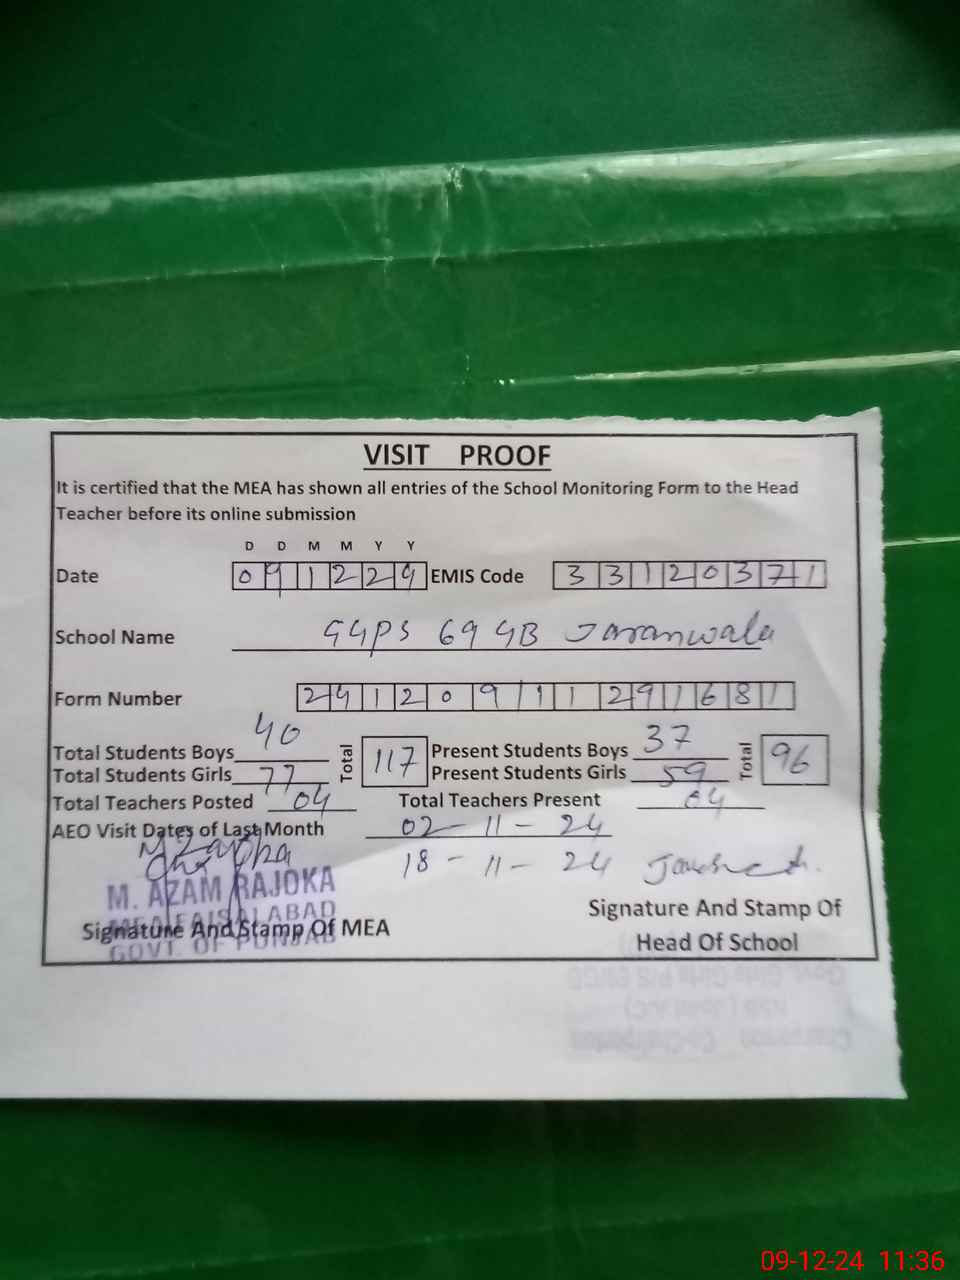 VISIT PROOF
It is certified that the MEA has shown all entries of the School Monitoring Form to the Head
Teacher before its online submission
D D M M Y Y
Date 091224 EMIS Code 33120371
School Name GGPS 69 GB Jaranwala
Form Number
Total Students Boys 40 Total 117 Present Students Boys 37 Total 96
Total Students Girls 77 Present Students Girls 59
Total Teachers Posted 04 Total Teachers Present 04
AEO Visit Dates of Last Month 02-11-24
18-11-24
M. AZAM RAJOKA
MEA FAISALABAD
GOVT. OF PUNJAB
Signature And Stamp Of MEA
Signature And Stamp Of
Head Of School
09-12-24 11:36